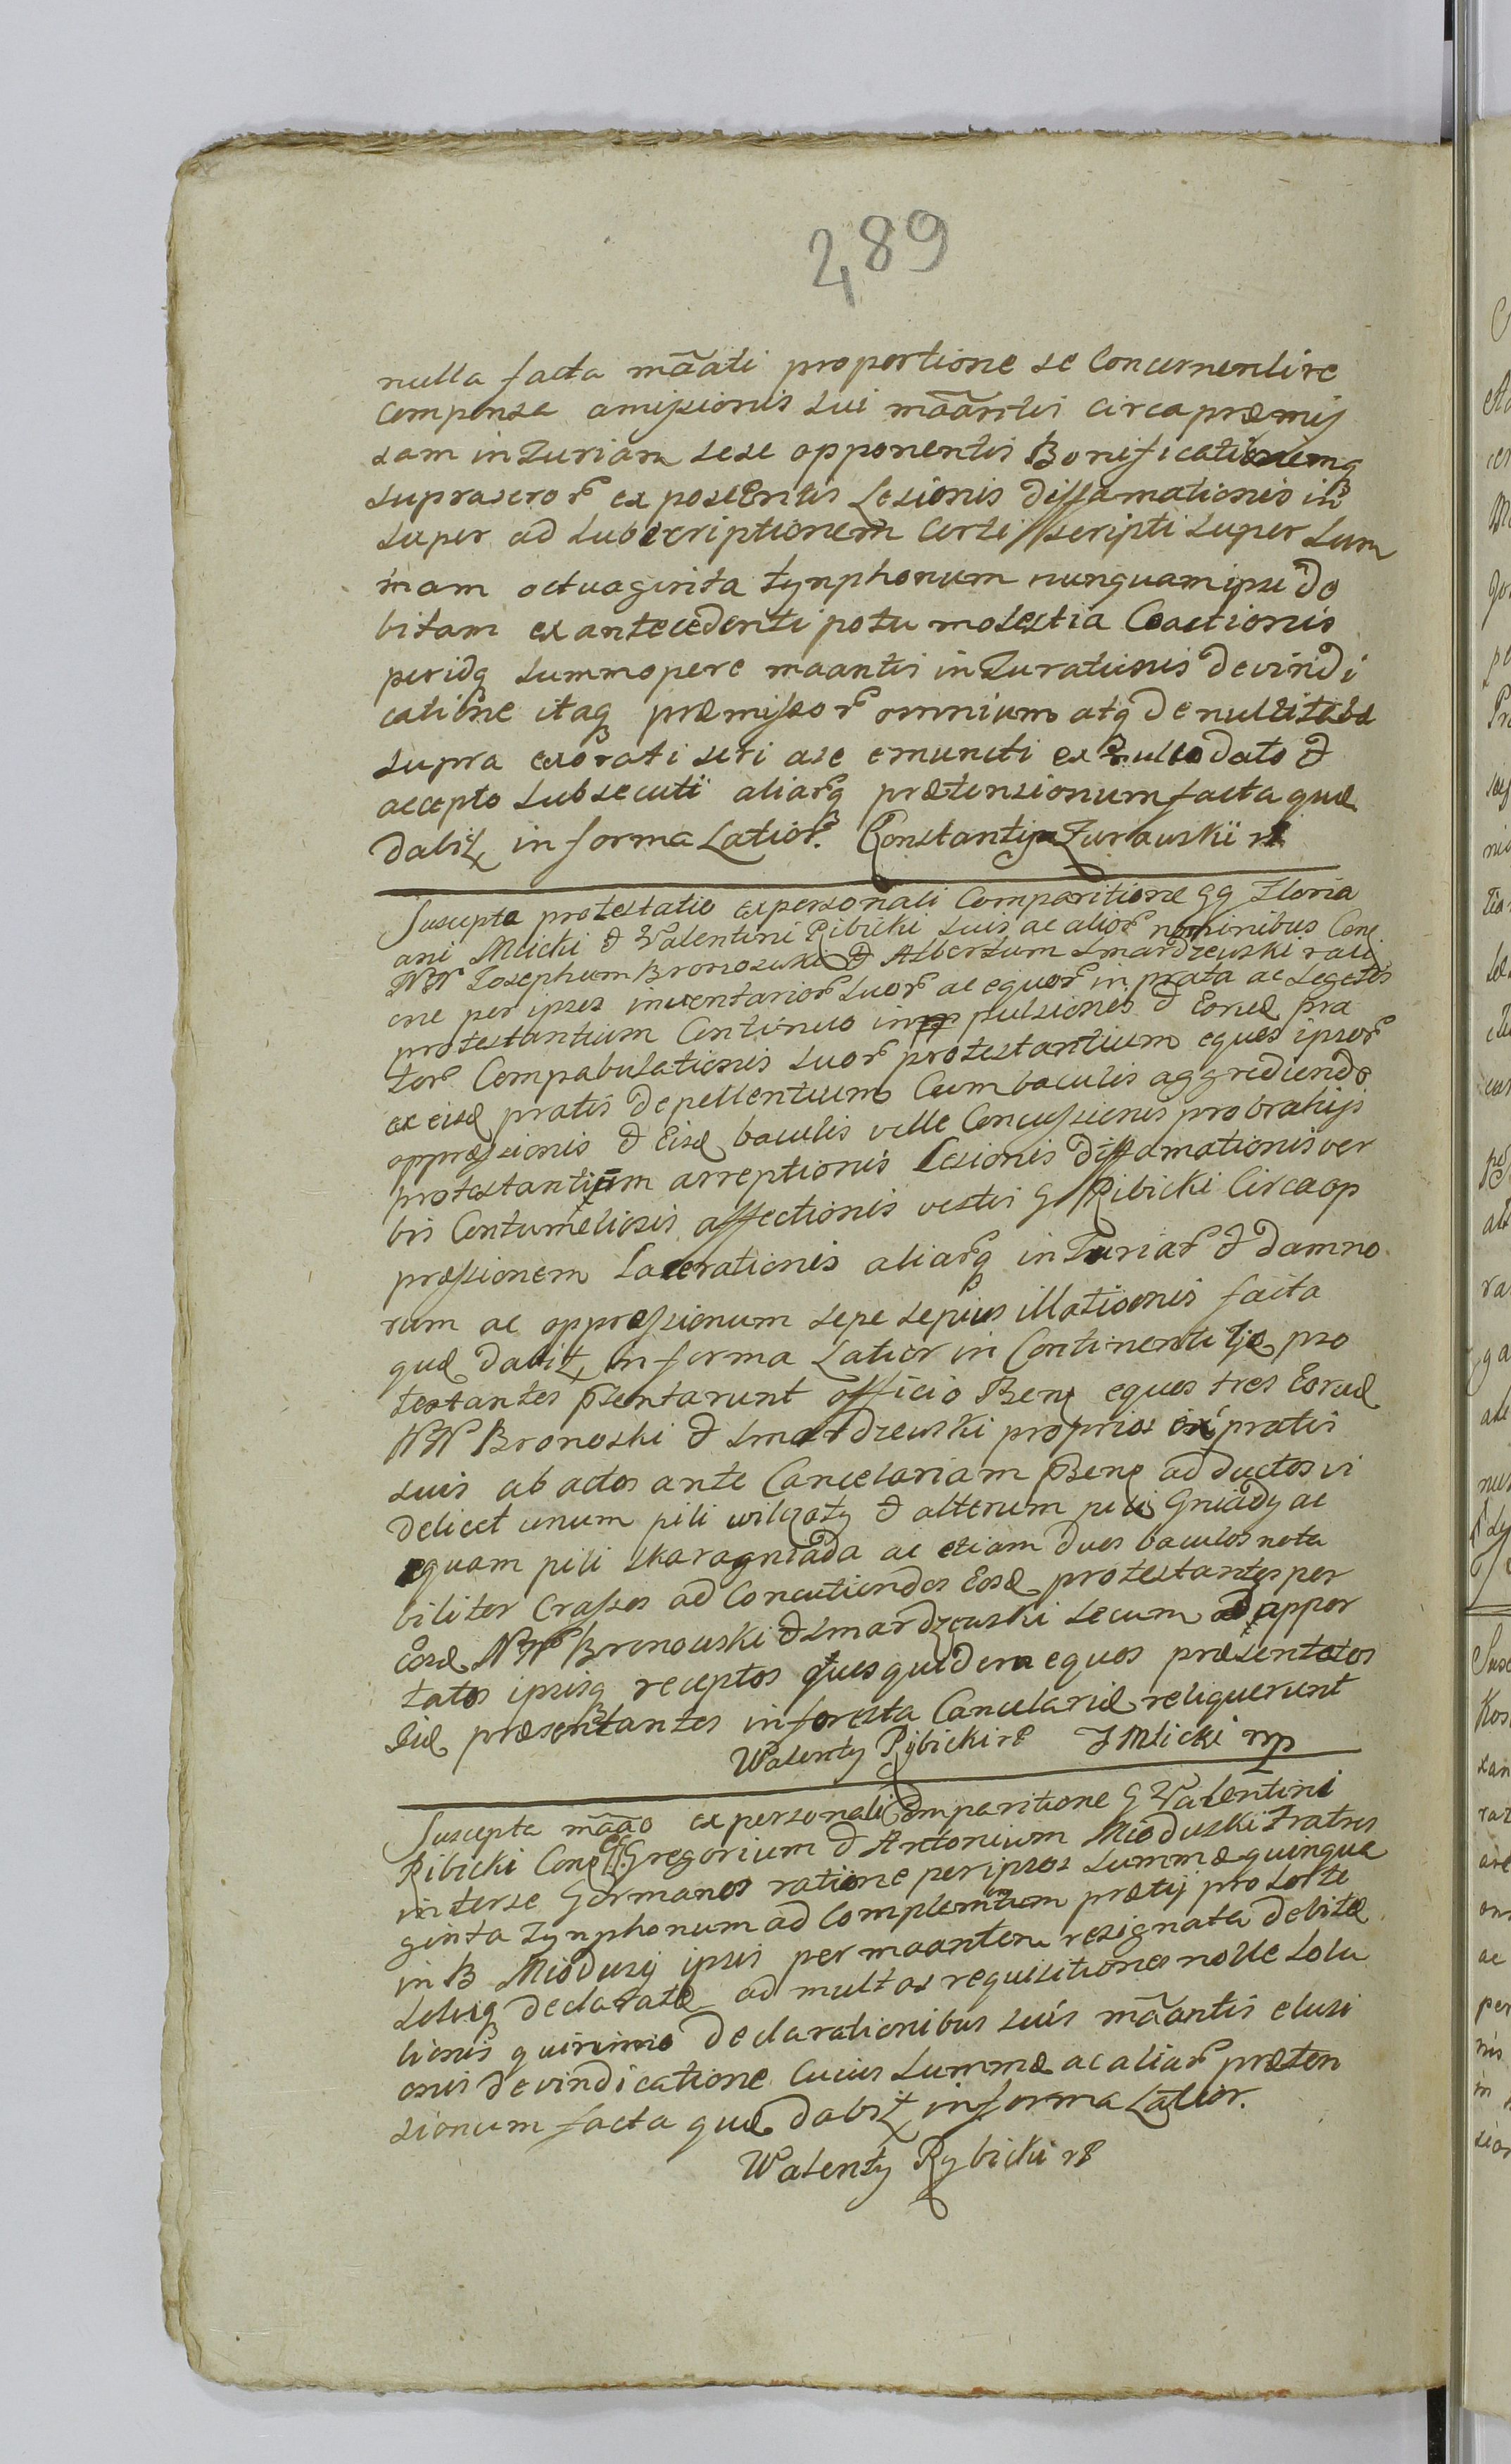 289
nulla facta mãati proportione se Concernenti re
compensa amissionis sui mãantis circa præmis
sam inZuriam sese opponentis Bonificationemq
suprascror ex poscentis Lesionis diffamationis in
super ad subscriptionem Certi scripti super Sum
mam octuaginta tynphonum nunquam ipsi de
bitam ex antecedenti potu molestia Coactionis
peridq summopere maantis inZurationis devindi
catione itaq præmissor omnium atq de nullitate
supra exorati scri ase emuncti ex nullo dato &
accepto subsecuti aliarq prætensionum facta quæ
dabit in forma Latior. Constanty Zurawskii
Suscepta protestatio ex personali Comparitione GG Floria
ani Mlicki & Valentini Ribicki suis ac alior nominibus Con
NN Iosephum Bronowski & Albertum Smardzewski rati
one per ipsos inventarior suor ac equor in prata ac Segetes
protestantium Continuo in pulsiones & Eorud pra
tor Compabulationis suor protestantium equos ipsor
ex eisd pratis depellentium Cum baculis aggrediendo
oppressionis & Eisd baculis velle Concussionis pro brahijs
protestantium arreptionis Lesionis diffamationis ver
bis Contumeliosis affectionis vestis G Ribicki Circa op
pressionem Lacerationis aliarq inZuriar & damno
rum ac oppressionum sepe sepius illationis facta
quæ dabit in forma Latior in Continenti Ijd pro
testantes psentarunt officio Beng equos tres Eorud
NN Bronoski & Smardzewski proprios ex pratis
suis ab actos ante Cancelariam pBeng ad ductos vi
delicet unum pili wilczaty & alterum pili Gniady ac
equam pili skarogniada ac etiam duos baculos nota
biliter Crassos ad Concutiendos Eosd protestantes per
Eosd NN Bronowski & Smardzewski secum ad appor
tatos ipsisq receptos quos quidem equos præsentatos
Iid præsentantes in foresta Cancelariæ reliquerunt
Walenty Rybicki F Mlicki mp
Suscepta mãão ex personali Comparitione G Valentini
Ribicki Con GG Gregorium & Antonium Mioduski Fratres
inter se Germanos ratione per ipsos Summæ quinqua
ginta tynphonum ad Complementum prætij pro sorte
in B Miodusy ipsis per maantem resignata debitæ
Solviq declaratæ ad multas requisitiones nolle Solu
tionis quinimo declarationibus suis mãantis elusi
onis devindicatione Cuius Summæ ac aliar præten
sionum facta quæ dabit in forma Latior.
Walenty Rybicki